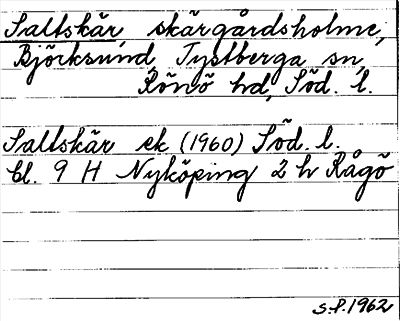 Saltskär skärgårdsholme,
Björksund, Tystberga sn,
Rönö hd, Söd. l.
Saltskär ek (1960) Söd. l.
bl. 9 H Nyköping 2 h Rågö
S.P. 1962